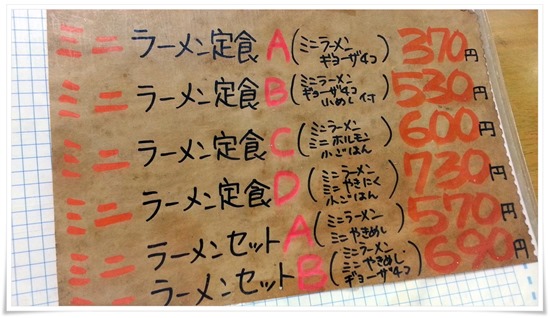 ミニラーメン定食A(ミニラーメン ギョーザ4コ)370円
ミニラーメン定食B(ミニラーメン ギョーザ4コ 小めし付)530円
ミニラーメン定食C(ミニラーメン ミニホルモン 小ごはん)600円
ミニラーメン定食D(ミニラーメン ミニやきにく 小ごはん)730円
ミニラーメンセットA(ミニラーメン ミニやきめし)570円
ミニラーメンセットB(ミニラーメン ミニやきめし ギョーザ4コ)690円